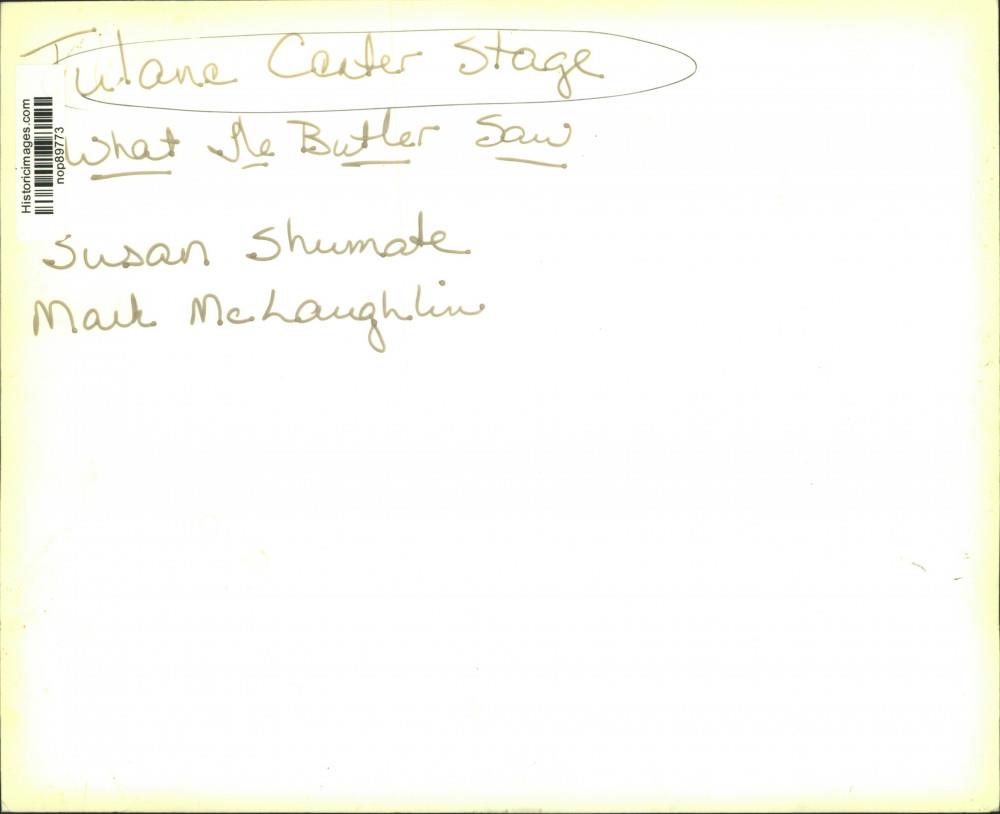 Tulane Center Stage
What the Butler Saw
Susan Shumate
Mark McLaughlin
Historicimages.com
nop89773